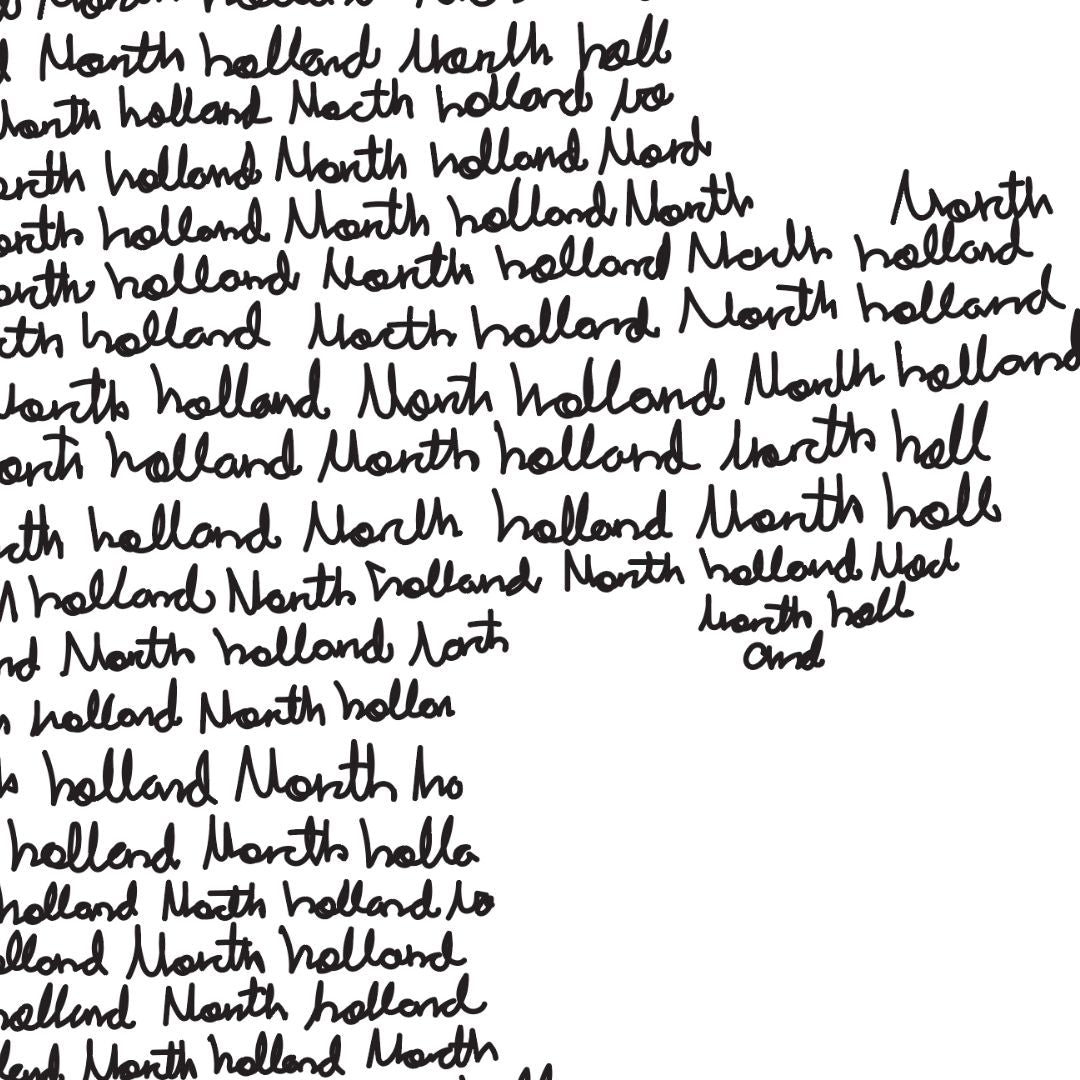 North holland North holl
North holland North holland No
orth holland North holland Nord
orth holland North holland North
North
orth holland North holland North holland
rth holland North holland North holland
North holland North holland North holland
orth holland North holland North holl
rth holland North holland North holl
holland North holland North holland Nod
North holl
and
nd North holland North
h holland North hollan
holland North ho
holland North holla
holland North holland No
olland North holland
holland North holland
land North holland North